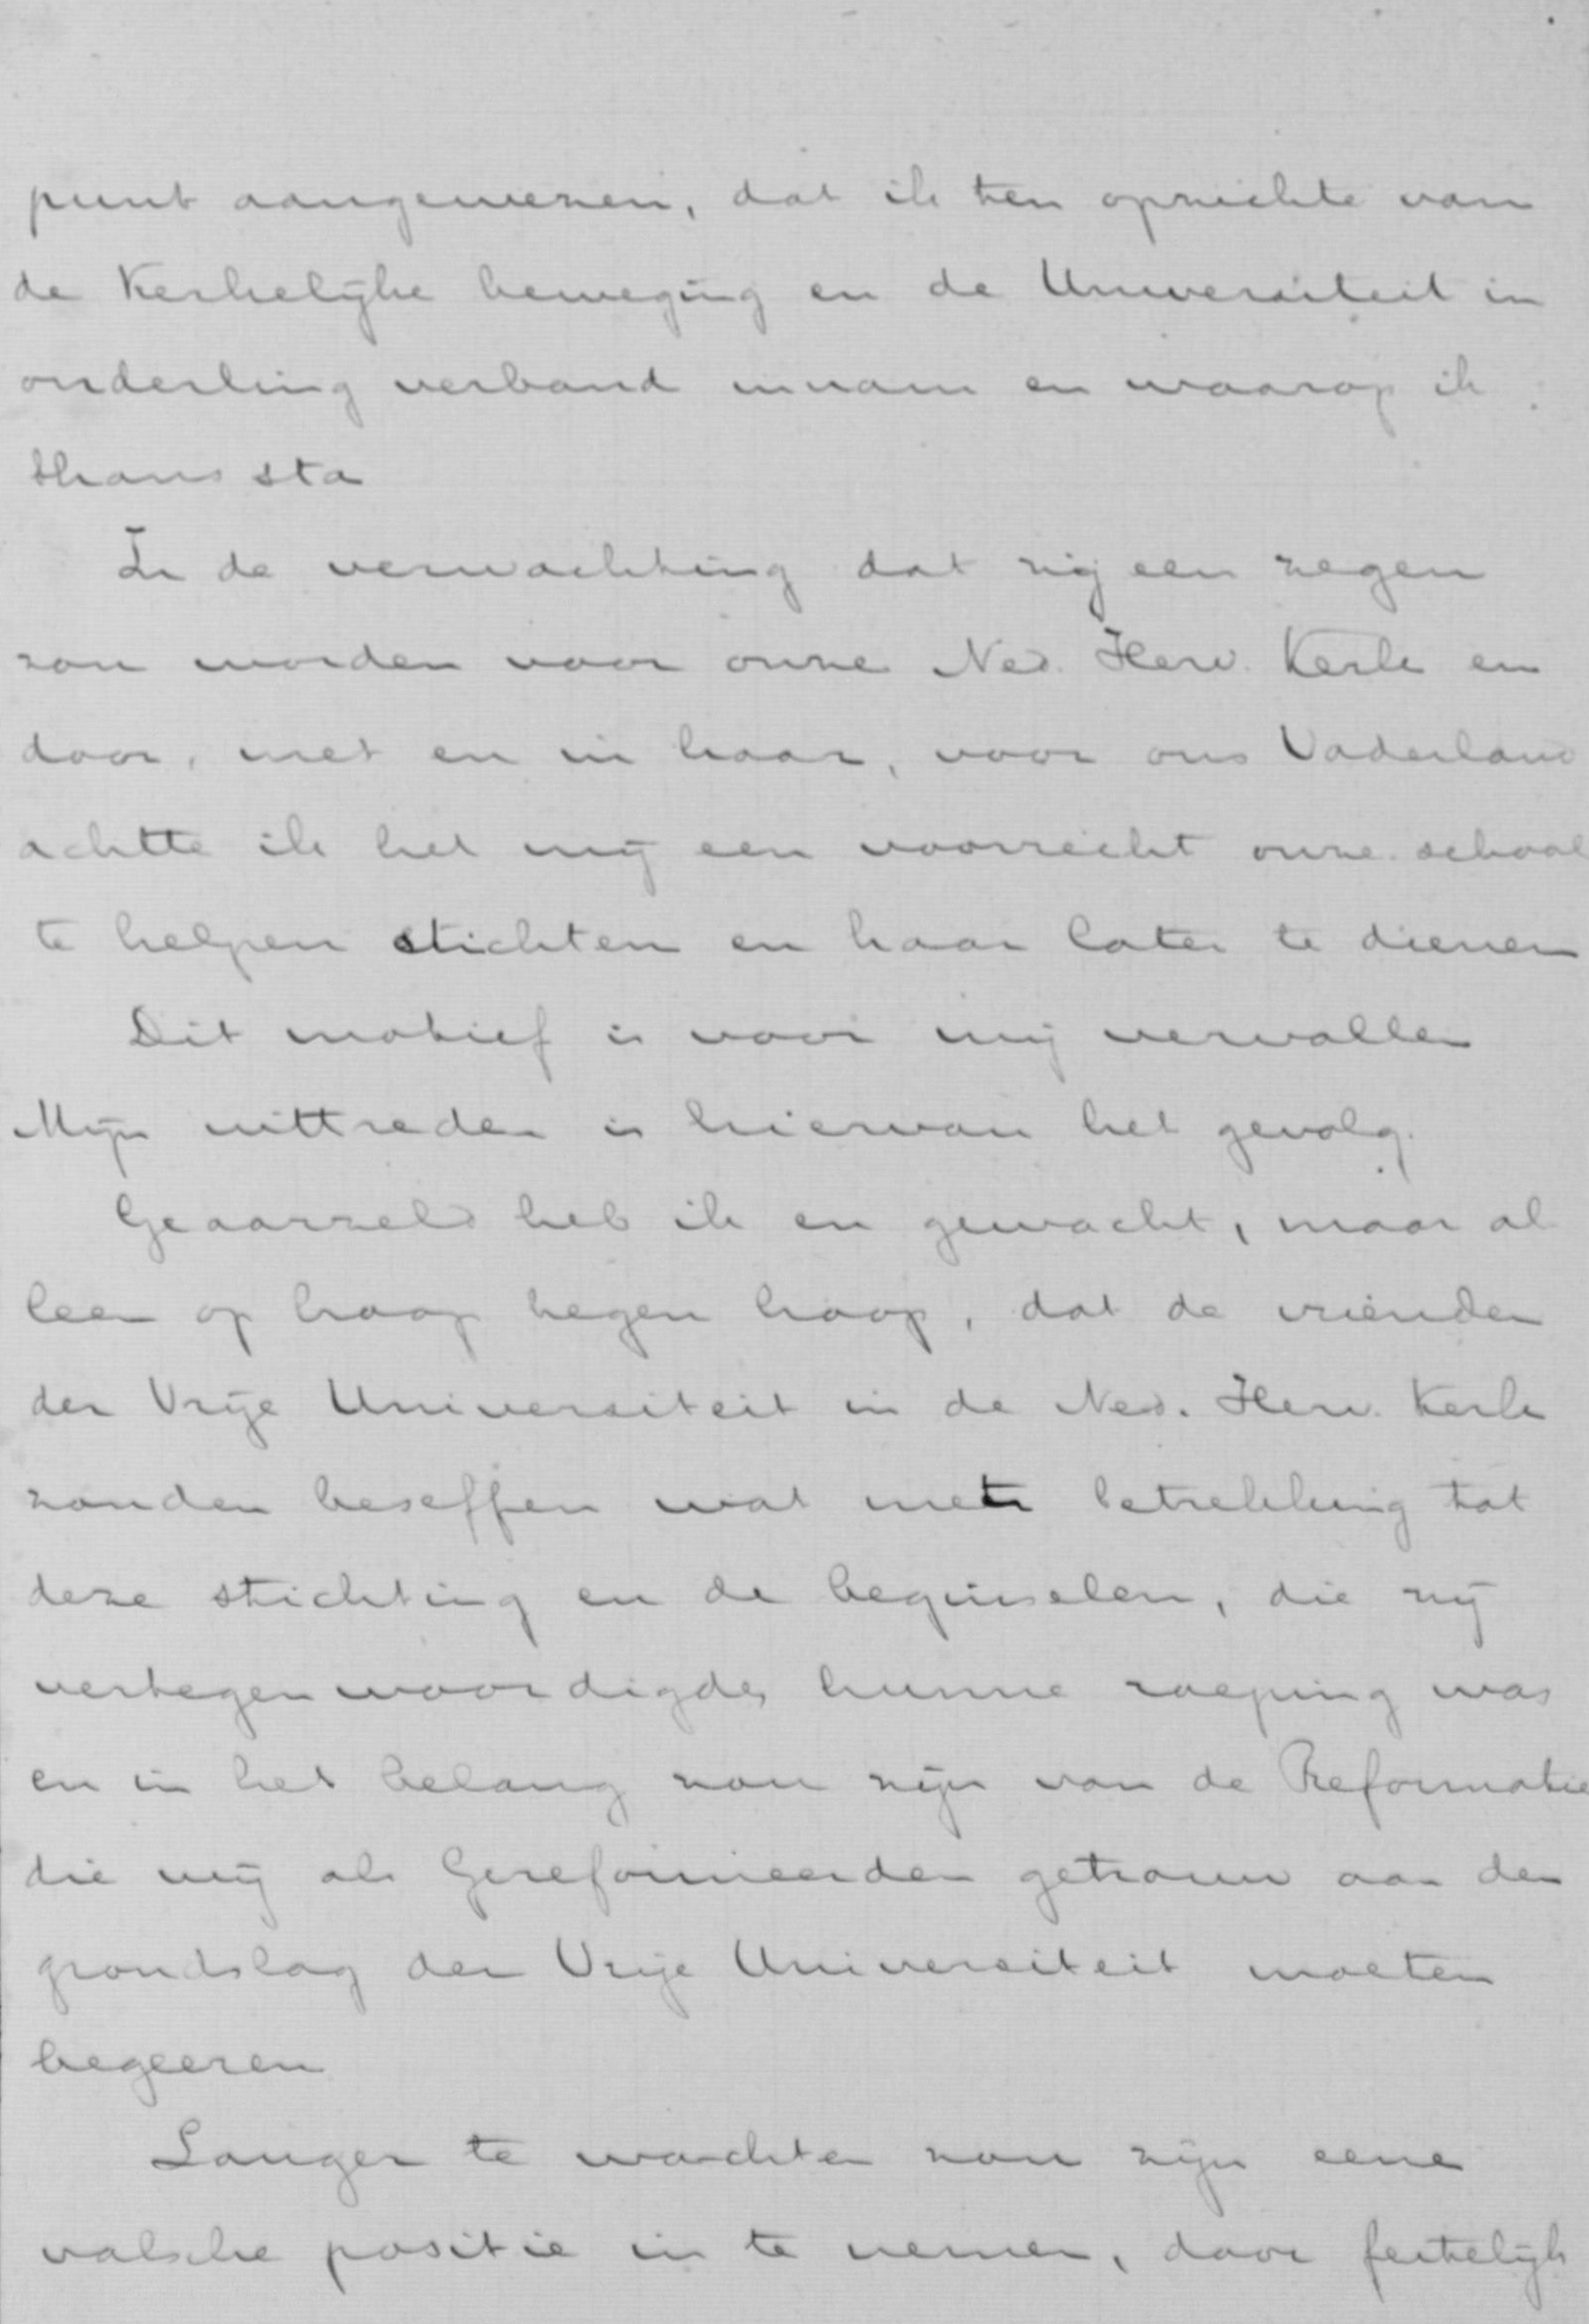 punt aangewezen, dat ik ten opzichte van
de Kerkelijke beweging en de Universiteit in
onderling verband innam en waarop ik
thans sta
In de verwachting dat zij een zegen
zou worden voor onze Ned. Herv. Kerk en
door, met en in haar, voor ons Vaderland
achtte ik het mij een voorrecht onze school
te helpen stichten en haar later te dienen
Dit motief is voor mij vervallen
Mijn uittreden is hiervan het gevolg.
Geaarzeld heb ik en gewacht, maar al
leen op hoop tegen hoop, dat de vrienden
der Vrije Universiteit in de Ned. Herv. Kerk
zouden beseffen wat met betrekking tot
deze stichting en de beginselen, die zij
vertegenwoordigde, hunne roeping was
en in het belang zou zijn van de Reformatie
die wij als Gereformeerden getrouw aan den
grondslag der Vrije Universiteit moeten
begeeren
Langer te wachten zou zijn eene
valsche positie in te nemen, daar feitelijk